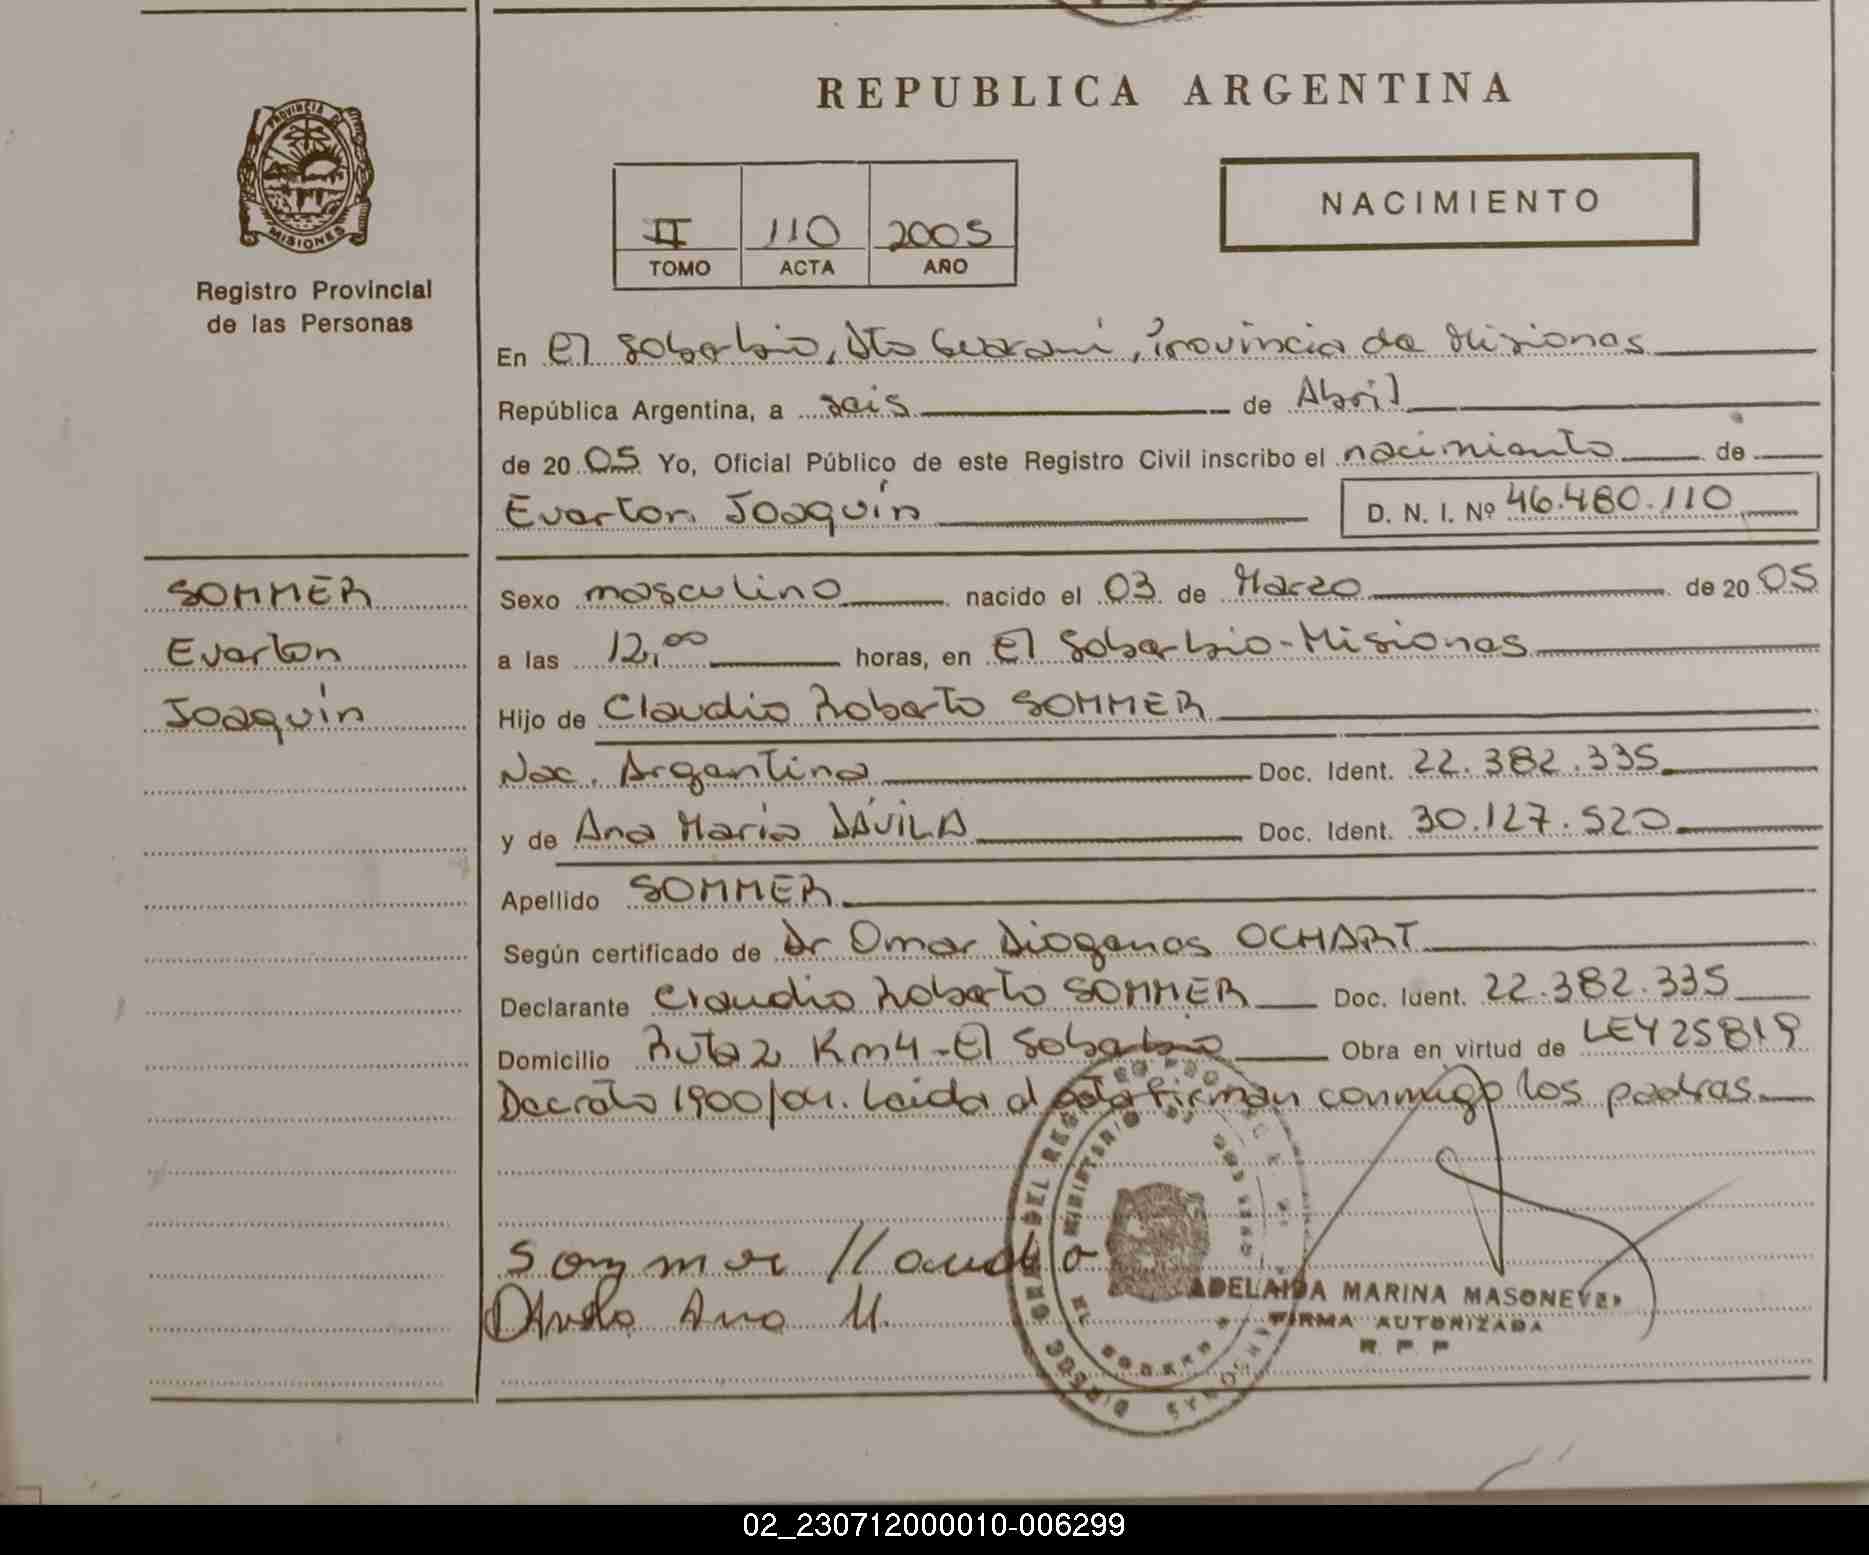 REPUBLICA ARGENTINA
PROVINCIA DE
MISIONES
Registro Provincial
de las Personas
II 110 2005
TOMO ACTA AÑO
NACIMIENTO
En El Soberbio, Dto Guaraní, Provincia de Misiones
República Argentina, a seis de Abril
de 2005 Yo, Oficial Público de este Registro Civil inscribo el nacimiento de
Everton Joaquín D. N. I. Nº 46.480.110
SOMMER
Everton
Joaquín
Sexo masculino nacido el 03 de Marzo de 2005
a las 12,00 horas, en El Soberbio-Misiones
Hijo de Claudio Roberto SOMMER
Nac. Argentina Doc. Ident. 22.382.335
y de Ana María DÁVILA Doc. Ident. 30.127.520
Apellido SOMMER
Según certificado de Dr Omar Diogenes OCHART
Declarante Claudio Roberto SOMMER Doc. Ident. 22.382.335
Domicilio Ruta 2 Km4-El Soberbio Obra en virtud de LEY 25819
Decreto 1900/04. Leida el acta firman conmigo los padres
Sommer
Ana M.
ADELAIDA MARINA
FIRMA AUTORIZADA
R. P. P
02_230712000010-006299